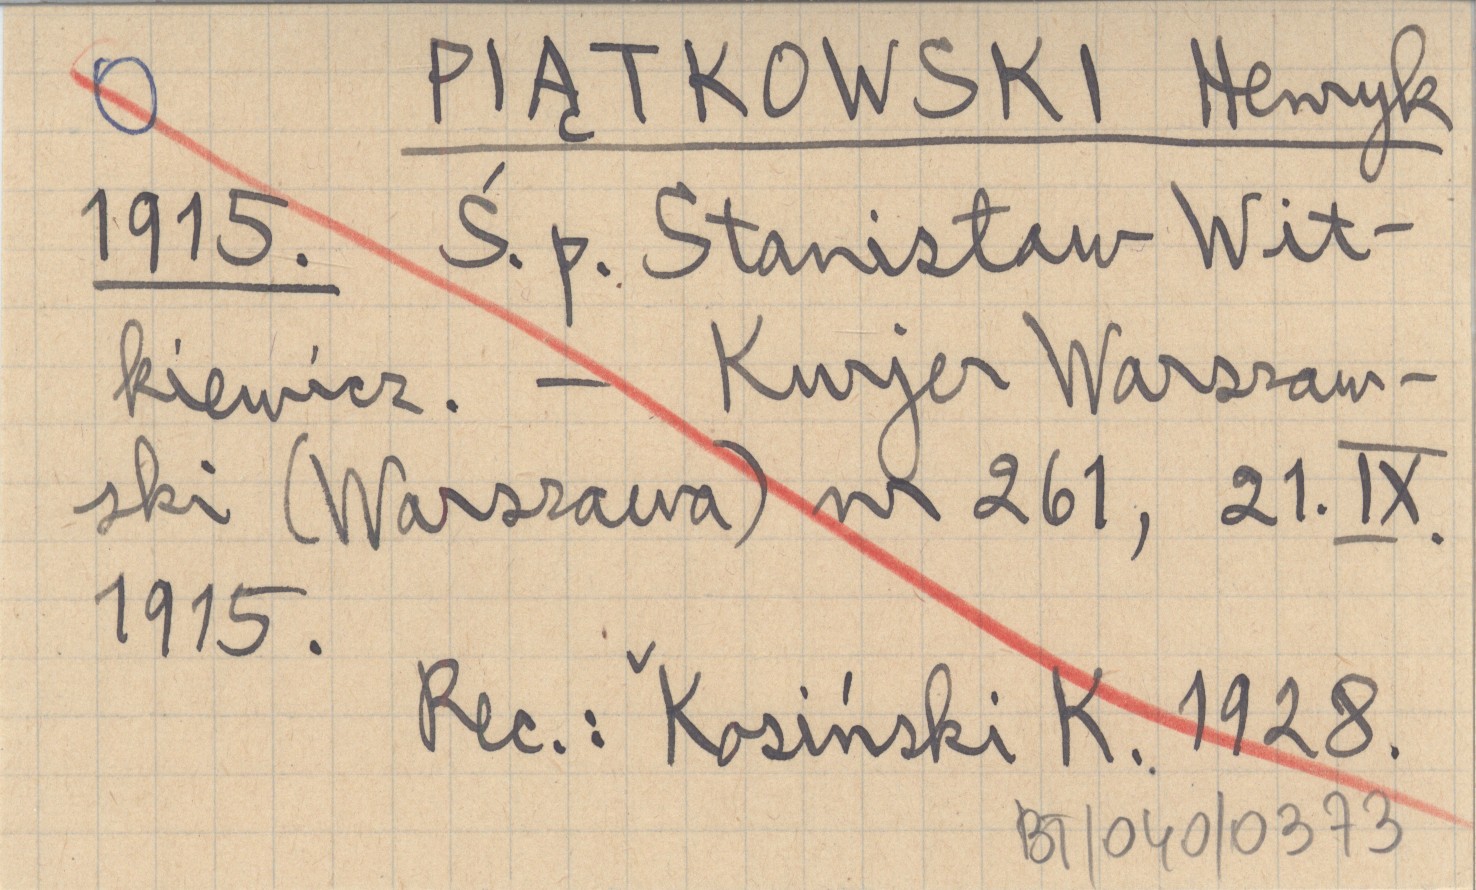 PIĄTKOWSKI Henryk
1915. Ś.p. Stanisław Wit-
kiewicz. — Kurjer Warszaw-
ski (Warszawa) nr 261, 21.IX.
1915.
Rec.: ˇKosiński K. 1928.
BT/040/0373